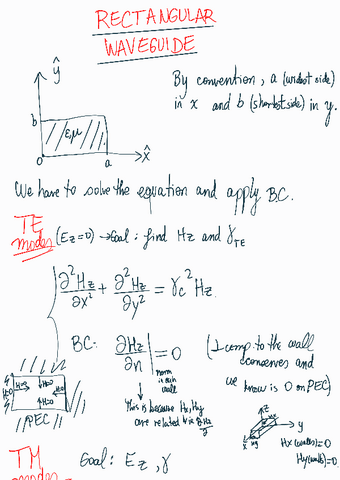 RECTANGULAR
WAVEGUIDE
ŷ
By convention, a (widest side)
in x and b (shortest side) in y.
b
ε,μ
0
a
x̂
We have to solve the equation and apply B.C.
TE
modes (Ez=0) → Goal: find Hz and γTE
∂²Hz/∂x² + ∂²Hz/∂y² = γc² Hz
BC: ∂Hz/∂n | = 0
norm
wall
(⊥ comp to the wall
conserves and
we know is 0 on PEC)
PEC
This is because Hx, Hy
are related
z
y
x
Hx(walls)=0
Hy(walls)=0
TM
modes
Goal: Ez, γ